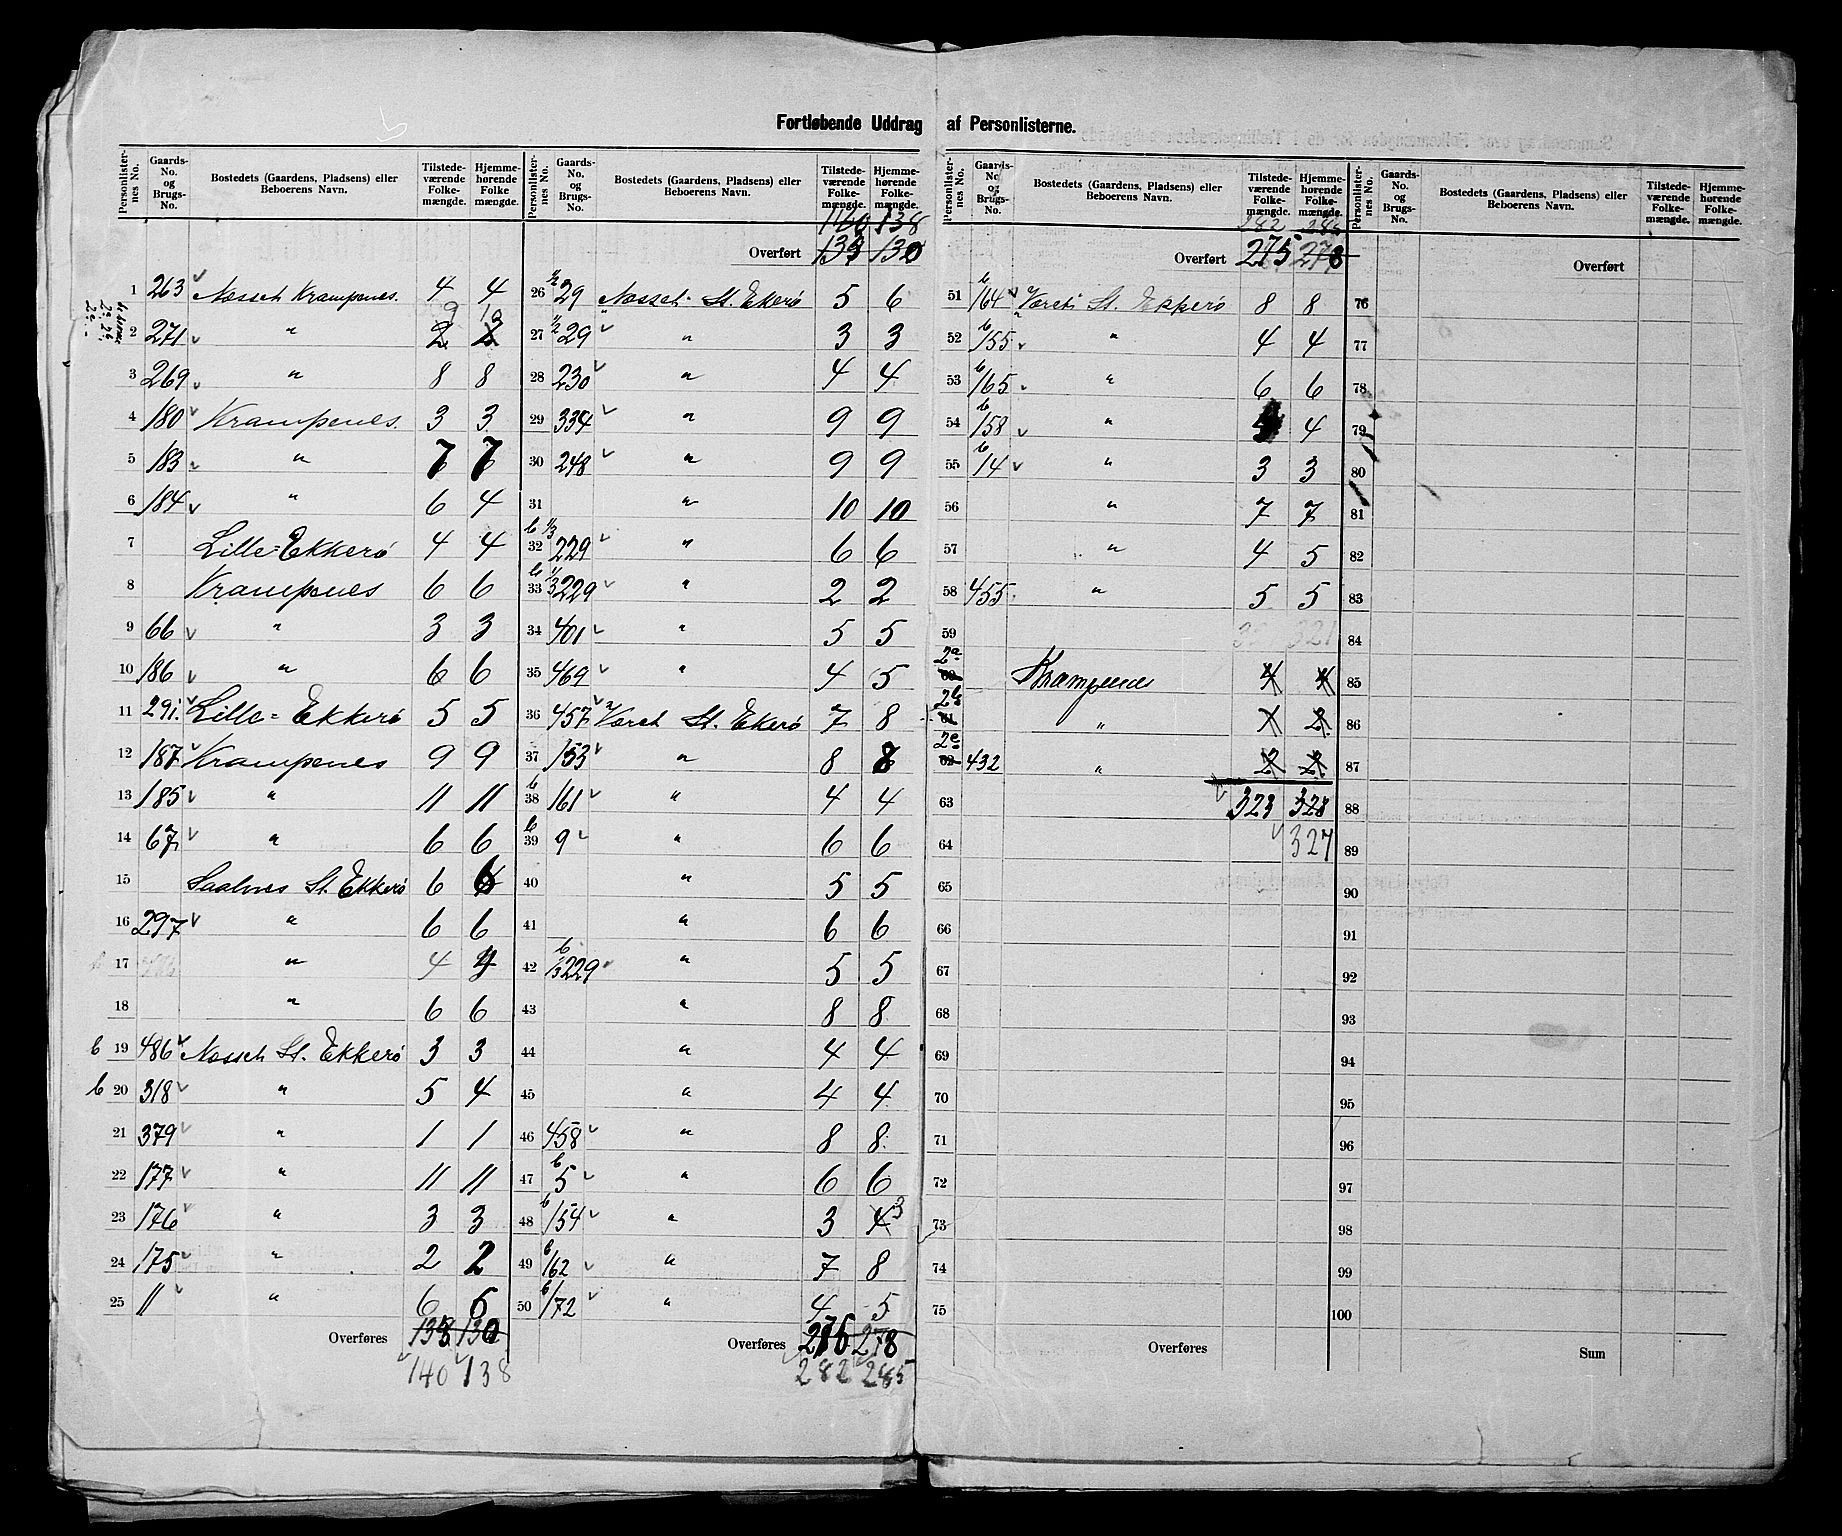 Fortløbende Uddrag af Personlisterne.
Personlister-nes No. Gaards-No. og Brugs-No. Bostedets (Gaardens, Pladsens) eller Beboerens Navn. Tilstede-værende Folke-mængde. Hjemme-hørende Folke mængde.
1 263 Næsset Krampenes. 4 4
2 271 " 2 2 9 10
3 269 " 8 8
4 180 Krampenes. 3 3
5 183 " 7 7
6 184 " 6 4
7 Lille-Ekkerö 4 4
8 Krampenes 6 6
9 66 " 3 3
10 186 " 6 6
11 291. Lille-Ekkerö 5 5
12 187 Krampenes 9 9
13 185 " 11 11
14 67 " 6 6
15 Saalnes St. Ekkerö 6 6
16 297 " 6 6
17 " 4 4
18 " 6 6
b 19 486 Næsset St. Ekkerö 3 3
b 20 318 " 5 4
21 379 " 1 1
22 177 " 11 11
23 176 " 3 3
24 175 " 2 2
25 11 " 6 6
Overføres 138 130
140 138
Personlister-nes No. Gaards-No. og Brugs-No. Bostedets (Gaardens, Pladsens) eller Beboerens Navn. Tilstede-værende Folke-mængde. Hjemme-hørende Folke-mængde.
140 138
Overført 139 130
26 1/2 29 Næsset St. Ekkerö 5 6
27 1/2 29 " 3 3
28 230 " 4 4
29 334 " 9 9
30 248 " 9 9
31 " 10 10
32 b 1/3 229 " 6 6
33 b 1/3 229 " 2 2
34 401 " 5 5
35 469 " 4 5
36 457 Været St. Ekerö 7 8
37 153 " 8 8
38 b 161 " 4 4
39 b 9 " 6 6
40 " 5 5
41 " 6 6
42 b 1/3 229 " 5 5
43 " 8 8
44 " 4 4
45 " 4 4
46 458 " 8 8
47 b 5 " 6 6
48 b 154 " 3 4 3
49 b 162 " 7 8
50 b 172 " 4 5
Overføres 276 278
282 285
Personlister-nes No. Gaards-No. og Brugs-No. Bostedets (Gaardens, Pladsens) eller Beboerens Navn. Tilstede-værende Folke-mængde. Hjemme-hørende Folke-mængde.
282 285
Overført 275 278
51 b 164 Været St. Ekkerö 8 8
52 b 155 " 4 4
53 b 165 " 6 6
54 b 158 " 4
55 b 14 " 3 3
56 " 7 7
57 " 4 5
58 455 " 5 5
59 321
60 2a Krampenes 4 4
61 2b " 1 2
62 2c 432 " 2 2
63 323 328
64 327
65
66
67
68
69
70
71
72
73
74
75
Overføres
Personlister-nes No. Gaards-No. og Brugs-No. Bostedets (Gaardens, Pladsens) eller Beboerens Navn. Tilstede-værende Folke-mængde. Hjemme-hørende Folke-mængde.
Overført
76
77
78
79
80
81
82
83
84
85
86
87
88
89
90
91
92
93
94
95
96
97
98
99
100
Sum